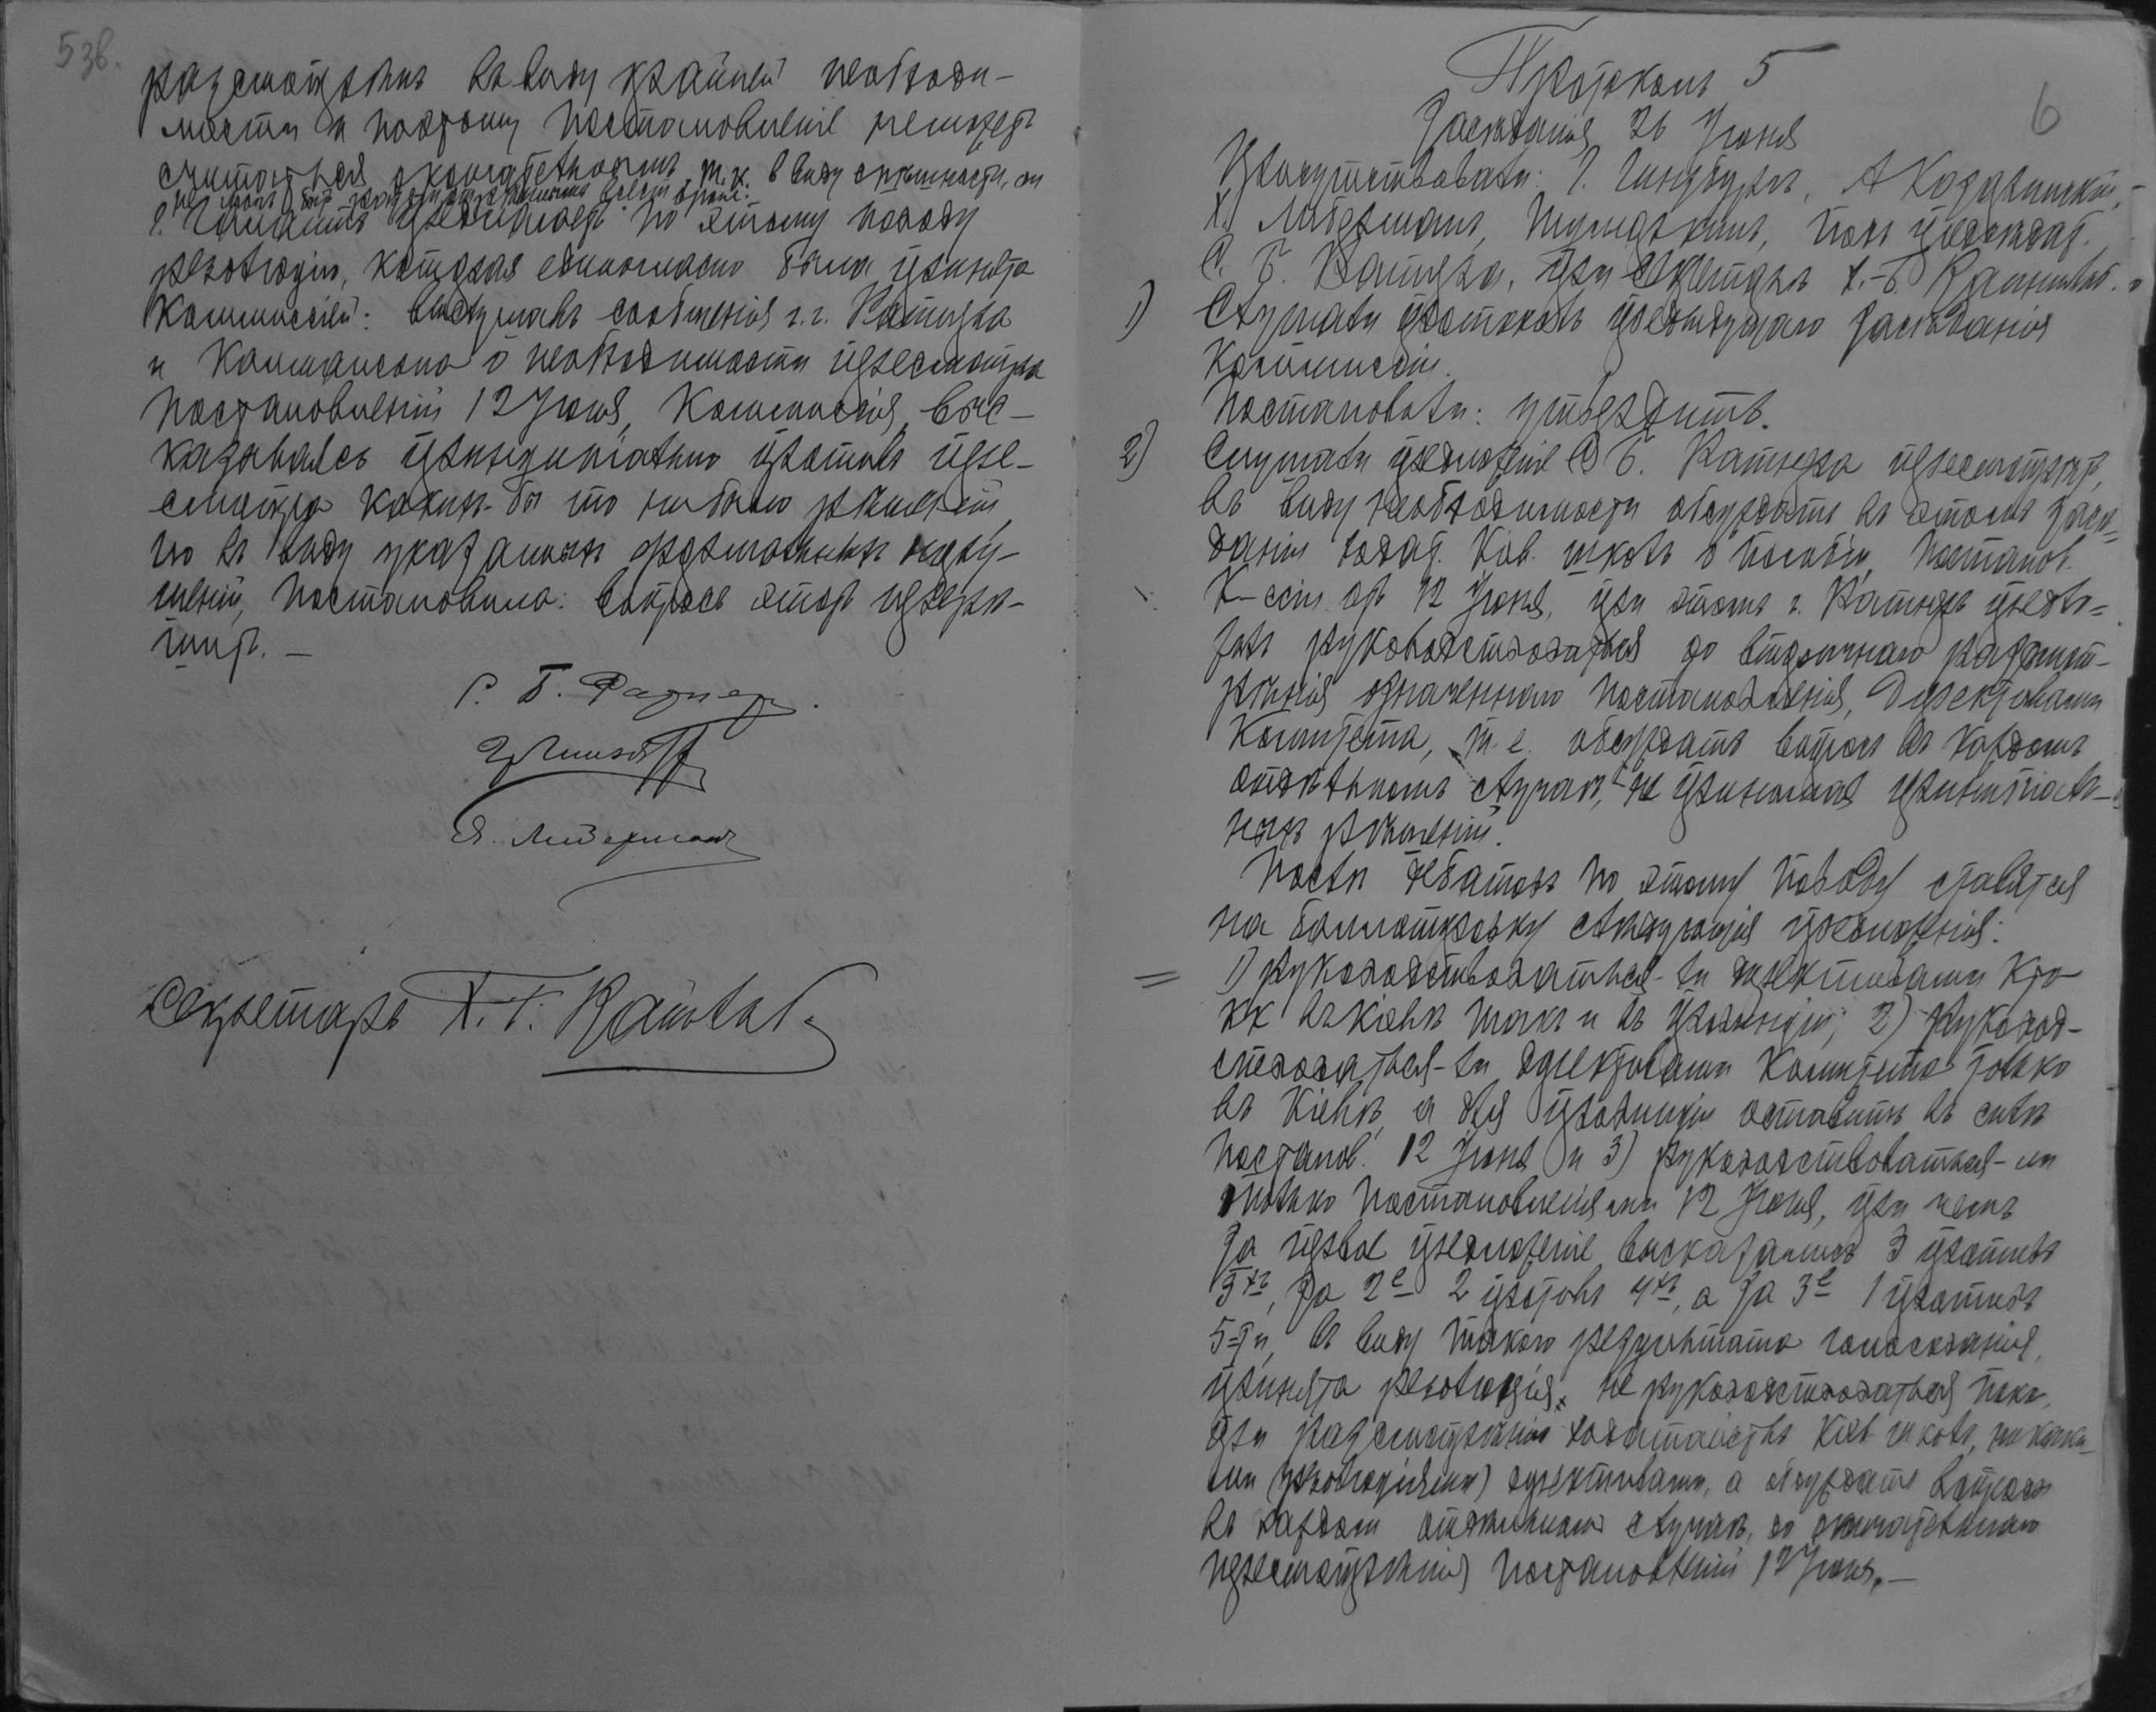 5 зв.
разсмотрѣть въ виду крайней необходи-
мости и поэтому постановленіе не можетъ
считаться окончательнымъ, т. к. въ виду спѣшности, он
не
Г. предлагаетъ по этому поводу
резолюцію, которая единогласно была принята
Коммиссіей: выслушавъ сообщенія г.г. Ратнера
и о необходимости пересмотра
постановленій 12 Іюня, Коммиссія, выс-
казываясь принципіально противъ пере-
смотра какихъ-бы то ни было рѣшеній,
но въ виду указанныхъ формальныхъ нару-
шеній, постановила: вопросъ этотъ перерѣ-
шить. —
С. Б. Ратнеръ.
Я. Либерманъ
Секретарь Х.-Б.
6
Протоколъ 5
Засѣданія 26 Іюня
Присутствовали: Г. Гинзбургъ, А
Х. Либерманъ, подъ предсѣдат.
С. Б. Ратнера, при секретарѣ Х.-Б.
1) Слушали протоколъ предыдущаго засѣданія
Коммиссіи.
Постановили: утвердить.
2) Слушали предложеніе С. Б. Ратнера пересмотрѣть,
въ виду необходимости обсуждать въ этомъ засѣ-
даніи ходат. Кіев. школъ о пособіи, постанов.
К-ссіи отъ 12 Іюня, при этомъ г. Ратнеръ предла-
галъ руководствоваться до вторичнаго разсмот-
рѣнія означеннаго постановленія, Директивами
Комитета, т. е. обсуждать вопросъ въ каждомъ
отдѣльномъ случаѣ, не принимая принципіаль-
ныхъ рѣшеній.
Послѣ дебатовъ по этому поводу ставятся
на баллотировку слѣдующія предложенія:
1) руководствоваться-ли директивами Ко-
та какъ въ Кіевѣ такъ и въ провинціи; 2) руковод-
ствоваться-ли директивами Комитета только
въ Кіевѣ, а для провинціи оставить въ силѣ
постанов. 12 Іюня и 3) руководствоваться-ли
только постановленіями 12 Іюня, при чемъ
за первое предложеніе высказались 3 противъ
3хъ, за 2е 2 противъ 4хъ, а за 3е 1 противъ
5-ти, въ виду такого результата голосованія,
принята резолюція: не руководствоваться пока,
при разсмотрѣніи ходатайствъ Кіев. школъ, никаки-
ми (резолюціями) директивами, а обсуждать вопросъ
въ каждомъ отдѣльномъ случаѣ, до окончательнаго
пересмотрѣнія постановленій 12 Іюня. —